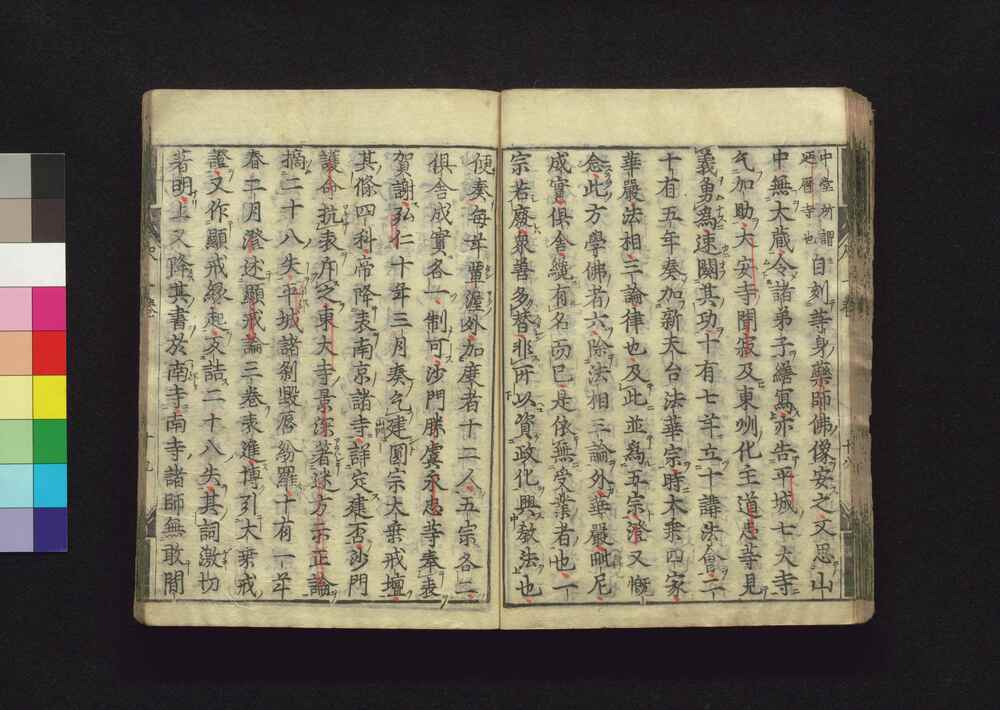 中堂所謂
延暦寺也
自刻等身藥師佛像安之又思山
中無大藏令諸弟子繕寫亦告平城七大寺
乞加助大安寺聞寂及東州化主道忠等見
義勇為速闋其功十有七年立十講法會二
十有五年奏加新天台法華宗時本朶四家
華嚴法相三論律也及此並為五宗澄又慨
念此方學佛者六除法相三論外華嚴毗尼
成實俱舍纔有名而已是依無受業者也一
宗若廢衆善多替非所以資政化興教法也
便奏每年輦渥外加度者十二人五宗各二
俱舍成實各一制可沙門勝虞永忠等奉表
賀謝弘仁十年三月奏乞建圓宗大乗戒壇
其條四科帝降表南京諸寺詳定建否沙門
護命抗表斥之東大寺景深著述方示正論
摘二十八失平城諸剎毀唇紛羅十有一年
春二月澄述顯戒論三卷表進博引大乗戒
證又作顯戒緣起文詰二十八失其詞激切
著明上又降其書於南寺南寺諸師無敢間